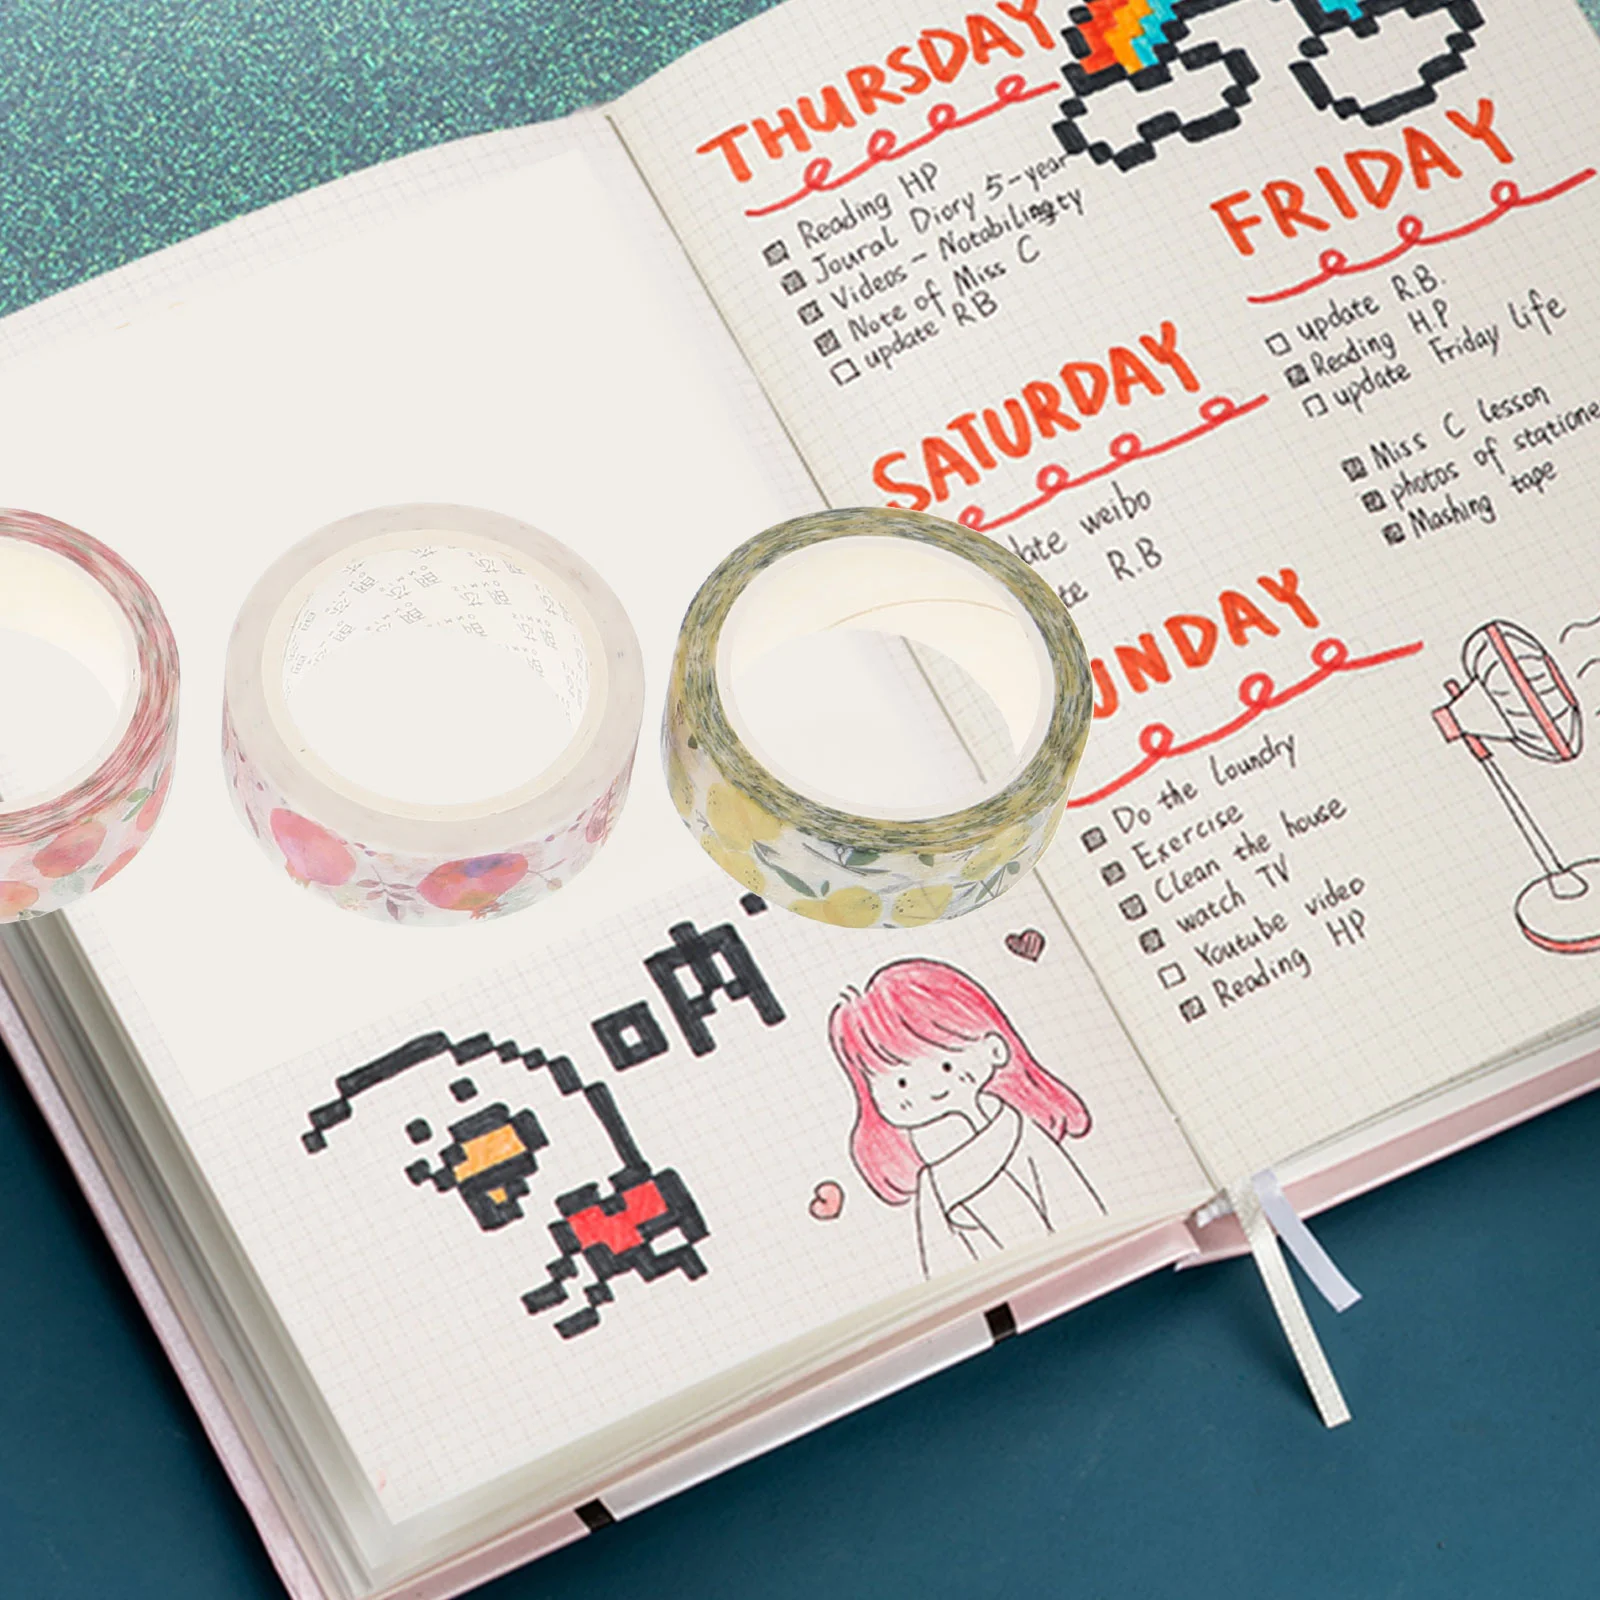 THURSDAY
Reading HP
Joural Diory 5-year
Videos - Notabilingty
Note of Miss C
update RB
FRIDAY
update R.B.
Reading H.P
update Friday life
Miss C lesson
photos of statione
Mashing tape
SATURDAY
date weibo
te R.B
UNDAY
Do the loundry
Exercise
Clean the house
watch TV
Youtube video
Reading HP